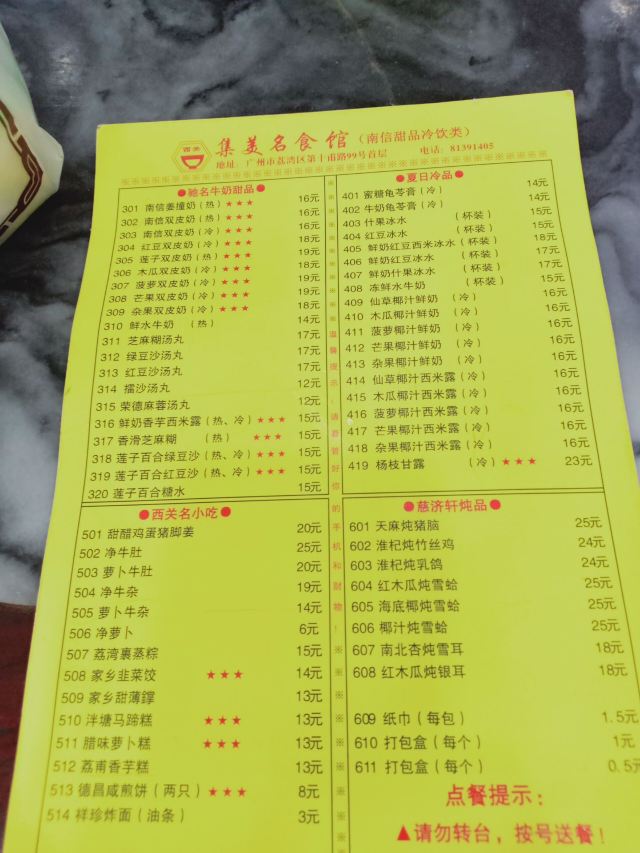 西关
集美名食馆（南信甜品冷饮类）
地址：广州市荔湾区第十甫路99号首层 电话：81391405
●驰名牛奶甜品●
301 南信姜撞奶（热）★★★ 16元
302 南信双皮奶（热）★★★ 16元
303 南信双皮奶（冷）★★★ 16元
304 红豆双皮奶（冷）★★★ 18元
305 莲子双皮奶（热）★★★ 19元
306 木瓜双皮奶（冷）★★★ 18元
307 菠萝双皮奶（冷）★★★ 19元
308 芒果双皮奶（冷）★★★ 18元
309 杂果双皮奶（冷）★★★ 19元
310 鲜水牛奶 （热） 14元
311 芝麻糊汤丸 17元
312 绿豆沙汤丸 17元
313 红豆沙汤丸 17元
314 擂沙汤丸 12元
315 荣德麻蓉汤丸 12元
316 鲜奶香芋西米露（热、冷）★★★ 15元
317 香滑芝麻糊 （热） ★★★ 15元
318 莲子百合绿豆沙（热、冷）★★★ 15元
319 莲子百合红豆沙（热、冷）★★★ 15元
320 莲子百合糖水 15元
●夏日冷品●
401 蜜糖龟苓膏（冷） 14元
402 牛奶龟苓膏（冷） 14元
403 什果冰水 （杯装） 15元
404 红豆冰水 （杯装） 15元
405 鲜奶红豆西米冰水（杯装） 18元
406 鲜奶红豆冰水 （杯装） 17元
407 鲜奶什果冰水 （杯装） 17元
408 冻鲜水牛奶 （杯装） 15元
409 仙草椰汁鲜奶 （冷） 16元
410 木瓜椰汁鲜奶 （冷） 16元
411 菠萝椰汁鲜奶 （冷） 16元
412 芒果椰汁鲜奶 （冷） 16元
413 杂果椰汁鲜奶 （冷） 16元
414 仙草椰汁西米露（冷） 16元
415 木瓜椰汁西米露（冷） 16元
416 菠萝椰汁西米露（冷） 16元
417 芒果椰汁西米露（冷） 16元
418 杂果椰汁西米露（冷） 16元
419 杨枝甘露 （冷）★★★ 23元
温馨提示：请看管好你的手机和财物！
●西关名小吃●
501 甜醋鸡蛋猪脚姜 20元
502 净牛肚 25元
503 萝卜牛肚 20元
504 净牛杂 19元
505 萝卜牛杂 14元
506 净萝卜 6元
507 荔湾裹蒸粽 15元
508 家乡韭菜饺 ★★★ 14元
509 家乡甜薄撑 13元
510 泮塘马蹄糕 ★★★ 13元
511 腊味萝卜糕 ★★★ 13元
512 荔甫香芋糕 13元
513 德昌咸煎饼（两只）★★★ 8元
514 祥珍炸面（油条） 3元
●慈济轩炖品●
601 天麻炖猪脑 25元
602 淮杞炖竹丝鸡 24元
603 淮杞炖乳鸽 24元
604 红木瓜炖雪蛤 25元
605 海底椰炖雪蛤 25元
606 椰汁炖雪蛤 25元
607 南北杏炖雪耳 18元
608 红木瓜炖银耳 18元
609 纸巾（每包） 1.5元
610 打包盒（每个） 1元
611 打包盒（每个） 0.5元
点餐提示：
▲请勿转台，按号送餐！